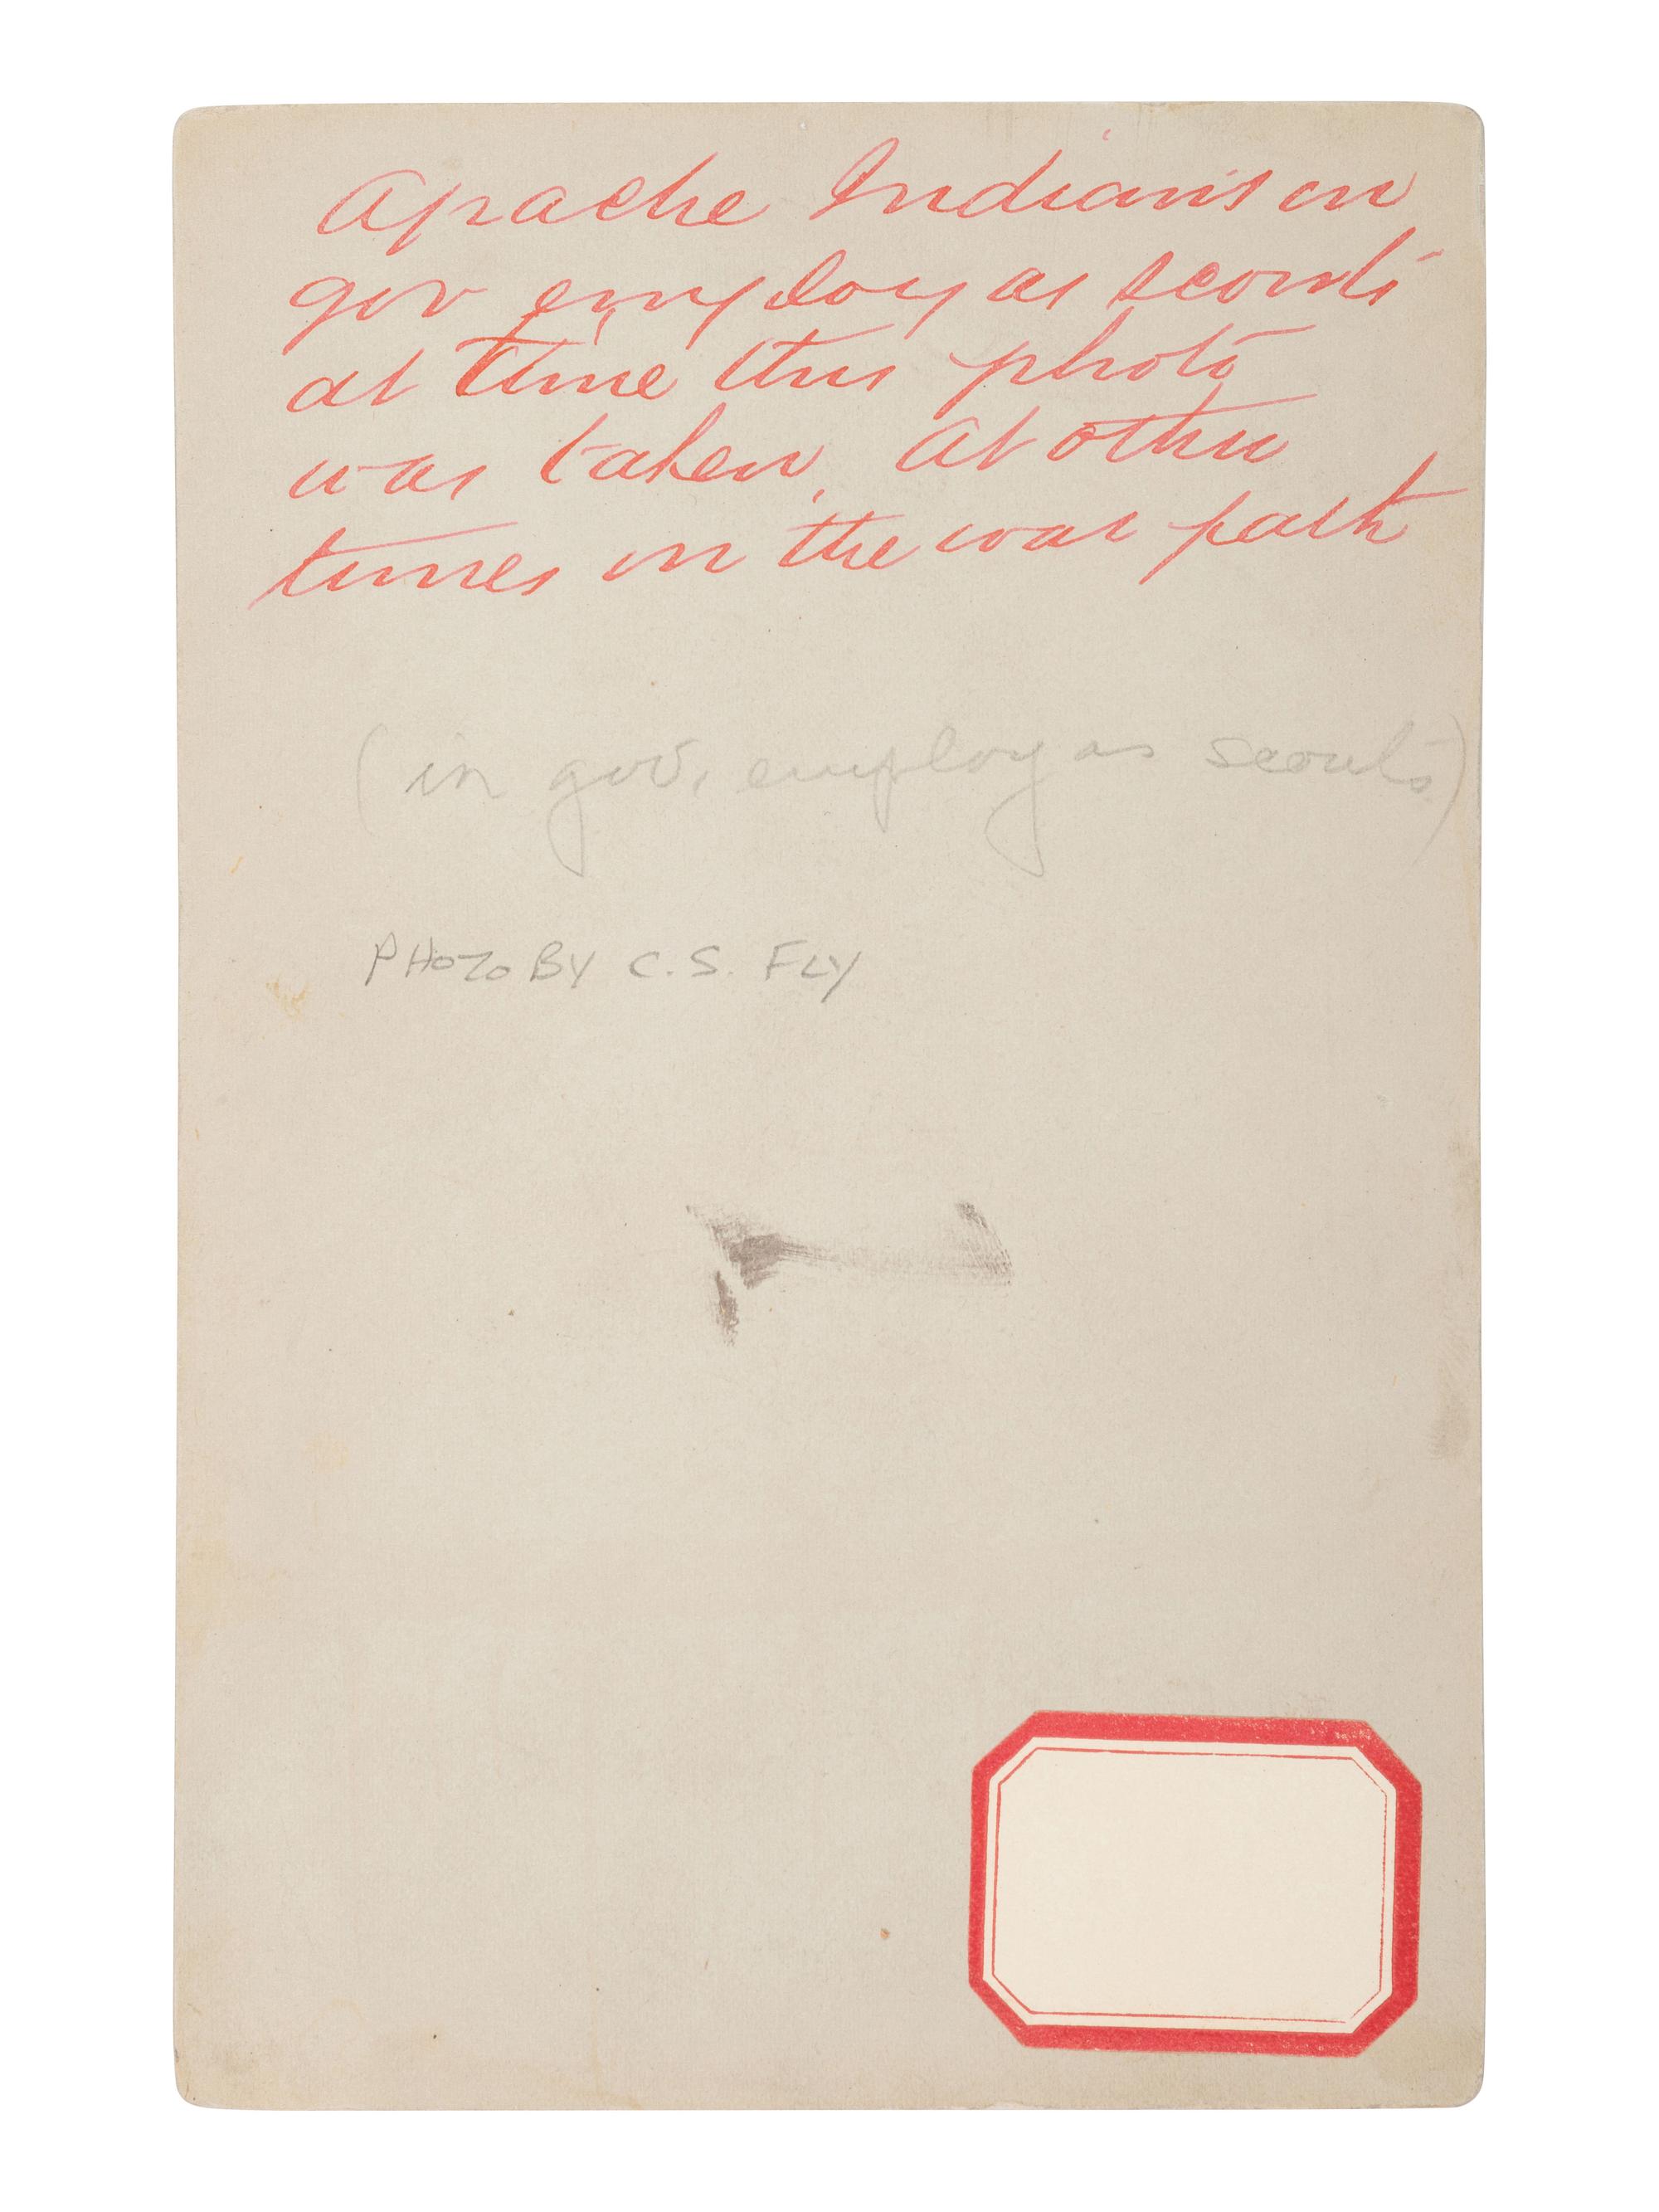 Apache Indians in
gov employ as scouts
at time this photo
was taken. At other
times on the war path
(in gov. employ as scouts)
PHOTO BY C.S. FLY